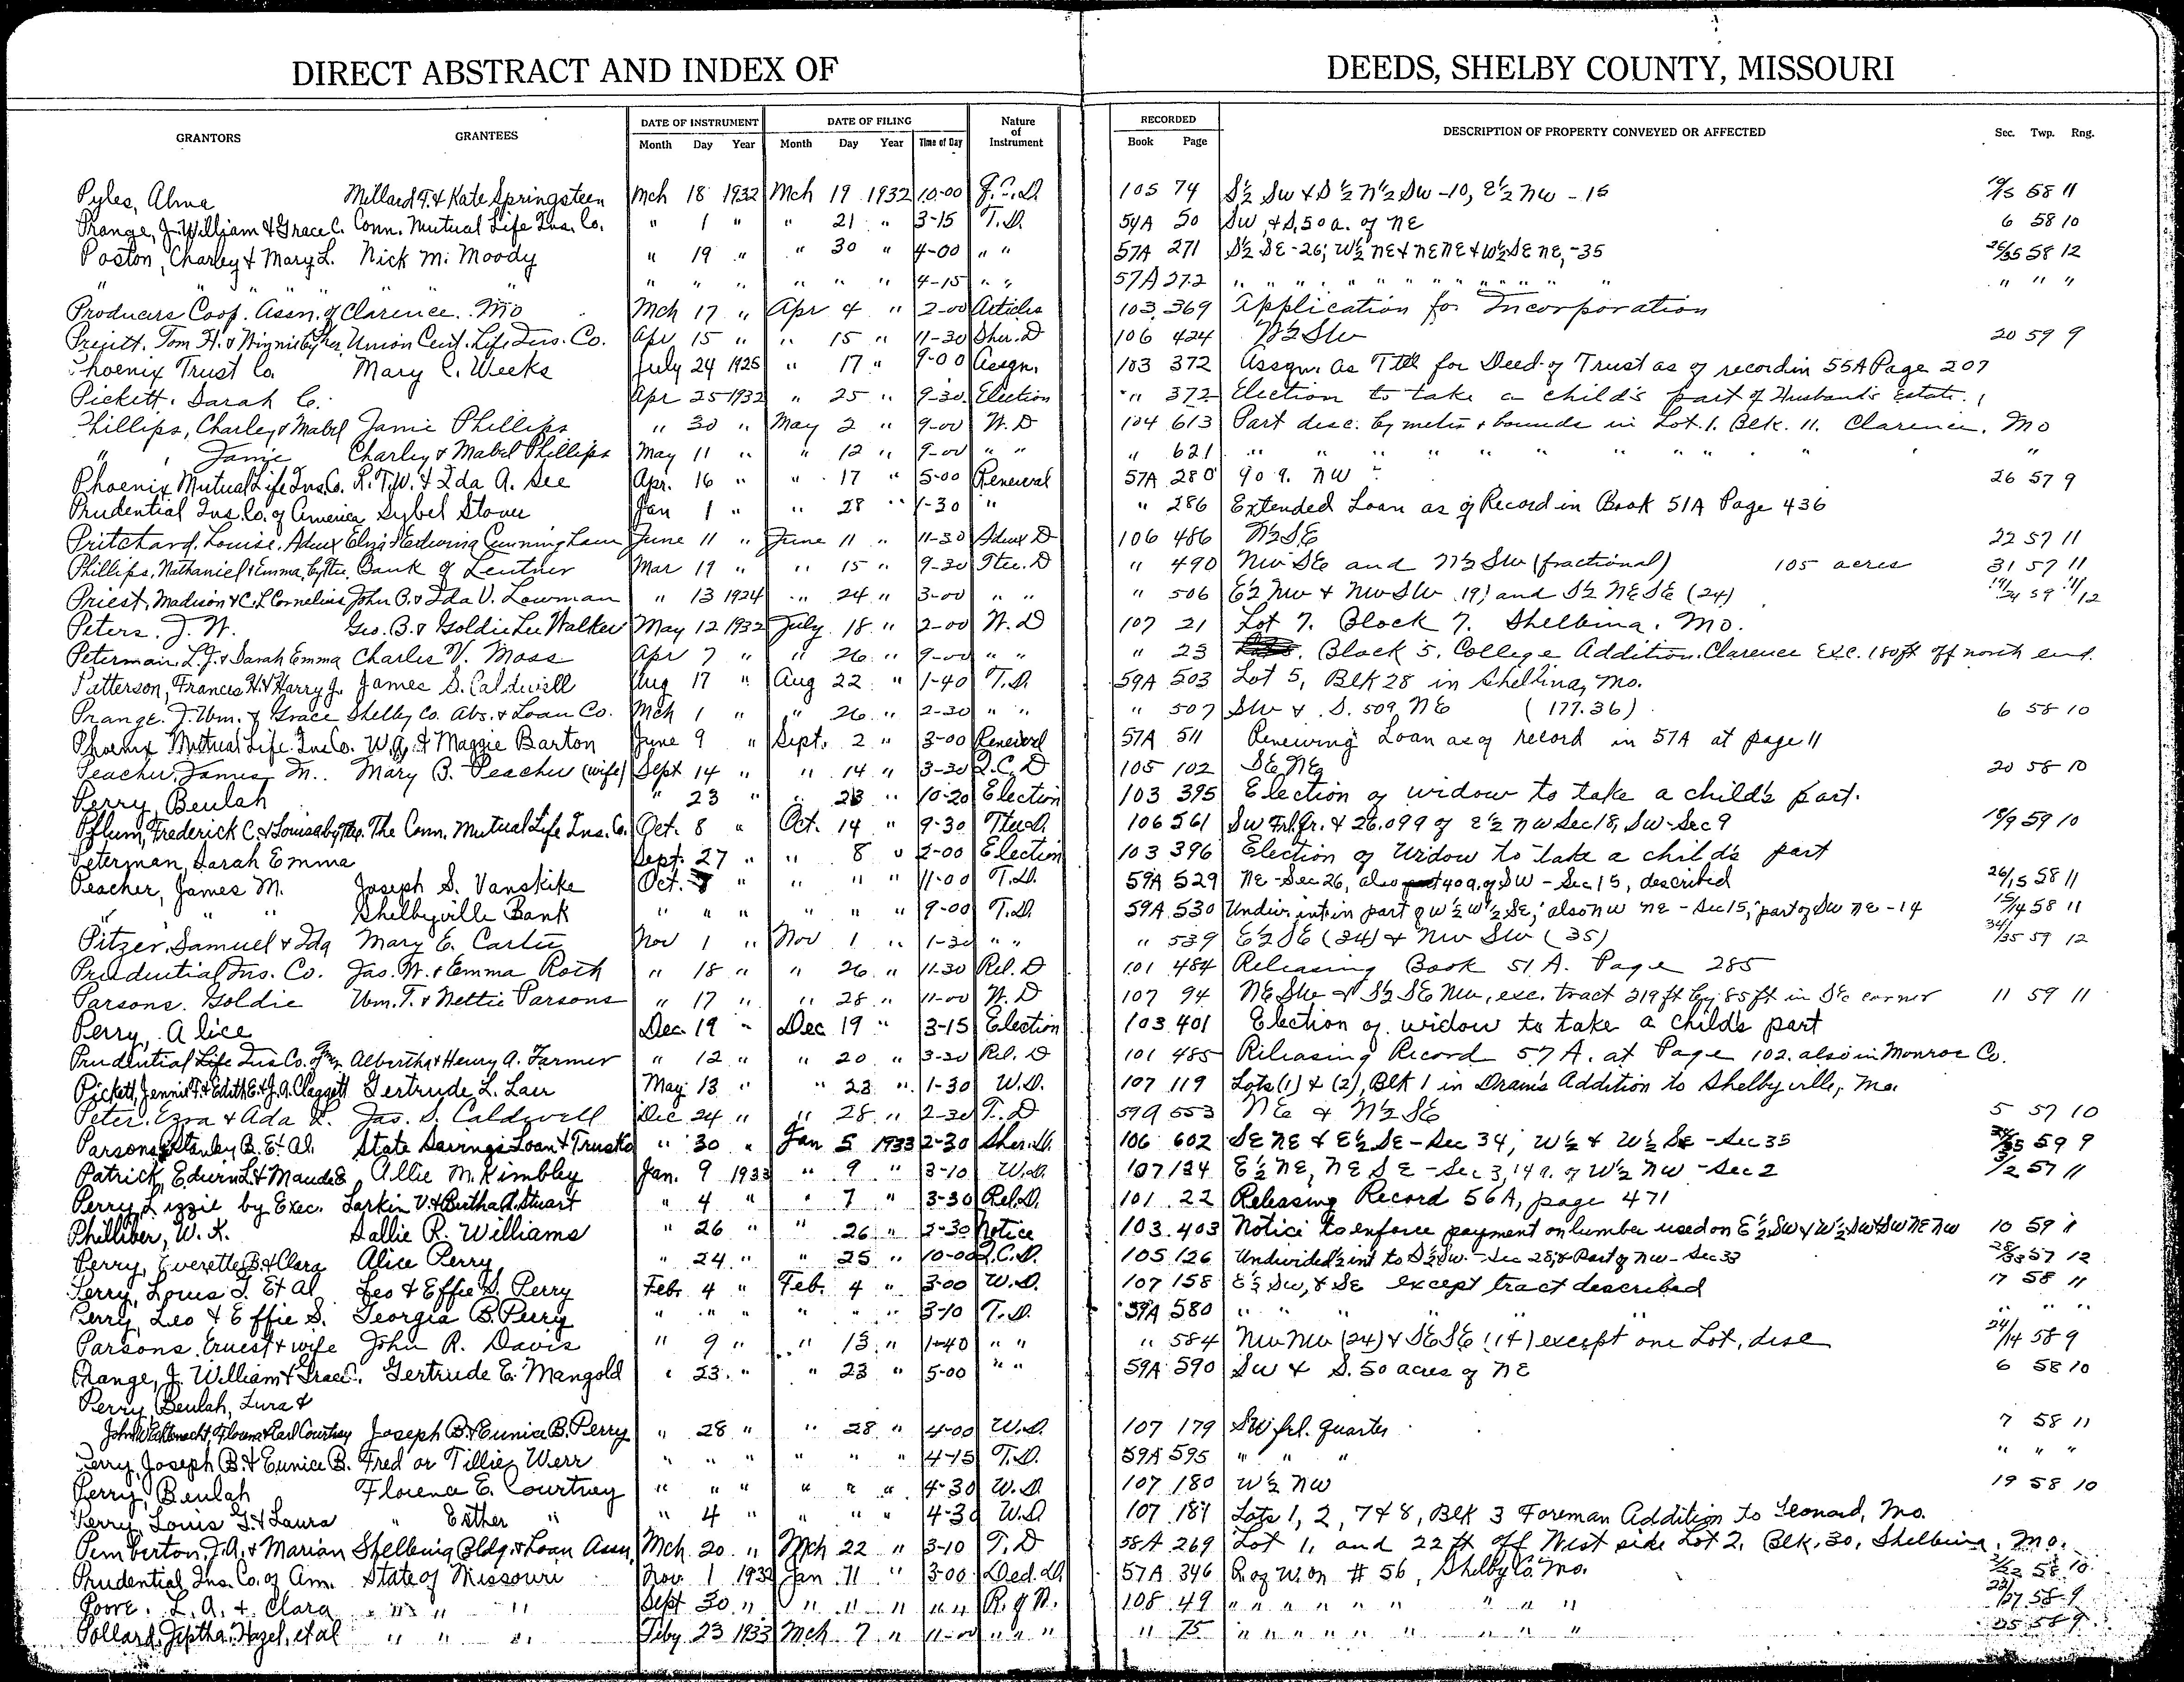 DIRECT ABSTRACT AND INDEX OF DEEDS, SHELBY COUNTY, MISSOURI
GRANTORS GRANTEES DATE OF INSTRUMENT DATE OF FILING Nature of Instrument RECORDED DESCRIPTION OF PROPERTY CONVEYED OR AFFECTED Sec. Twp. Rng.
Month Day Year Month Day Year Time of Day Book Page
Pyles, Alma Millard F. & Kate Springsteen Mch 18 1932 Mch 19 1932 10-00 Q.C.D. 105 74 S½ SW & S½ N½ SW -10, E½ NW - 15 10/15 58 11
Prange, J. William & Grace C. Conn. Mutual Life Ins. Co. " 1 " " 21 " 3-15 T.D. 54A 50 SW & S. 50 a. of NE 6 58 10
Poston, Charley & Mary L. Nick M. Moody " 19 " " 30 " 4-00 " " 57A 271 S½ SE-26; W½ NE & NE NE & W½ SE NE,-35 26/35 58 12
" " " " " " " " " 4-15 " " 57A 272 " " " " " " " " " " " " " "
Producers Coop. Assn. of Clarence. Mo Mch 17 " Apr 4 " 2-00 Articles 103 369 Application for Incorporation
Prewitt. Tom H. & Winnie by Sher. Union Cent. Life Ins. Co. Apr 15 " " 15 " 11-30 Sher. D 106 424 N½ SW 20 59 9
Phoenix Trust Co. Mary C. Weeks July 24 1925 " 17 " 9-00 Assgn. 103 372 Assgn. as Ttee for Deed of Trust as of record in 55A Page 207
Pickett, Sarah C. Apr 25 1932 " 25 " 9-30 Election " 372 Election to take a child's part of Husband's Estate.
Phillips, Charley & Mabel Janie Phillips " 30 " May 2 " 9-00 W.D 104 613 Part desc. by metes & bounds in Lot. 1. Blk. 11. Clarence, Mo
" , Janie Charley & Mabel Phillips May 11 " " 12 " 9-00 " " " 621 " " " " " " " " " " "
Phoenix Mutual Life Ins. Co. R.T.W. & Ida A. See Apr. 16 " " 17 " 5-00 Renewal 57A 280 90 a. NW 26 57 9
Prudential Ins. Co. of America Sybel Stover Jan 1 " " 28 " 1-30 " " 286 Extended Loan as of Record in Book 51A Page 436
Pritchard, Louise, Admx Eliza & Edwina Cunningham June 11 " June 11 " 11-30 Admx D 106 486 N½ SE 22 57 11
Phillips, Nathaniel & Emma, by Ttee. Bank of Lentner Mar 19 " " 15 " 9-30 Ttee. D " 490 NW SE and N½ SW (fractional) 105 acres 31 57 11
Priest, Madison & C.L Cornelius John B. & Ida V. Lowman " 13 1924 " 24 " 3-00 " " " 506 E½ NW & NW SW 19; and S½ NE SE (24) 19/24 59 11/12
Peters. J. W. Geo. B. & Goldie Lee Walker May 12 1932 July 18 " 2-00 W.D 107 21 Lot 7. Block 7. Shelbina. Mo.
Peterman, L.J. & Sarah Emma Charles V. Moss Apr 7 " " 26 " 9-00 " " " 23 Block 5. College Addition. Clarence Exc. 180 ft off north end.
Patterson, Frances H. & Harry J. James S. Caldwell Aug 17 " Aug 22 " 1-40 T.D. 59A 503 Lot 5, Blk 28 in Shelbina, Mo.
Prange. J. Wm. & Grace Shelby Co. Abs. & Loan Co. Mch 1 " " 26 " 2-30 " " " 507 SW & S. 50a, NE (177.36) 6 58 10
Phoenix Mutual Life Ins Co. W.A. & Maggie Barton June 9 " Sept. 2 " 3-00 Renewal 57A 511 Renewing Loan as of record in 57A at page 11
Peacher, James M. Mary B. Peacher (wife) Sept 14 " " 14 " 3-30 Q.C.D 105 102 SE NE 20 58 10
Perry, Beulah " 23 " 23 " 10-20 Election 103 395 Election of widow to take a child's part.
Pflum, Frederick C. & Louisa by Ttee. The Conn. Mutual Life Ins. Co. Oct. 8 " Oct. 14 " 9-30 Ttee D. 106 561 SW Frl. Qr. & 26.09a of E½ NW Sec 18, SW-Sec 9 18/9 59 10
Peterman, Sarah Emma Sept. 27 " " 8 " 2-00 Election 103 396 Election of Widow to take a child's part
Peacher, James M. Joseph S. Vanskike Oct. " " " " 11-00 T.D. 59A 529 NE-Sec 26, also 40a. of SW - Sec 15, described 26/15 58 11
" " Shelbyville Bank " " " " " " 9-00 T.D. 59A 530 Undiv. int. in part of W½ W½ SE; also NW NE - Sec 15; part of SW NE-14 15/14 58 11
Pitzer, Samuel & Ida Mary E. Carter Nov 1 " Nov 1 " 1-30 " " " 539 E½ SE (34) & NW SW (35) 34/35 59 12
Prudential Ins. Co. Jas. W. & Emma Roth " 18 " " 26 " 11-30 Rel. D 101 484 Releasing Book 51 A. Page 285
Parsons. Goldie Wm. T. & Nettie Parsons " 17 " " 28 " 11-00 W.D 107 94 NE SW & S½ SE NW, exc. tract 219 ft by 85 ft in SE corner 11 59 11
Perry, Alice Dec. 19 " Dec 19 " 3-15 Election 103 401 Election of widow to take a child's part
Prudential Life Ins Co. of Am Albertha & Henry A. Farmer " 12 " " 20 " 3-30 Rel. D 101 485 Releasing Record 57 A. at Page 102. also in Monroe Co.
Pickett, Jennie F. & Edith E. & J.A. Claggett Gertrude L. Lair May 13 " " 23 " 1-30 W.D. 107 119 Lots (1) & (2), Blk 1 in Drain's Addition to Shelbyville, Mo.
Peter. Ezra & Ada L. Jas. S. Caldwell Dec 24 " " 28 " 2-30 T.D 59A 553 NE & N½ SE 5 57 10
Parsons, Stanley B. Et Al. State Savings Loan & Trust Co " 30 " Jan 5 1933 2-30 Sher. D. 106 602 SE NE & E½ SE-Sec 34; W½ & W½ SE - Sec 35 34/35 59 9
Patrick, Edwin L. & Maude E Allie M. Kimbley Jan. 9 1933 " 9 " 3-10 W.D. 107 134 E½ NE, NE SE - Sec 3, 14 a. of W½ NW - Sec 2 3/2 57 11
Perry, Lizzie by Exec. Larkin V. & Bertha A. Stuart " 4 " " 7 " 3-30 Rel. D. 101 22 Releasing Record 56A, page 471
Philliber, W. K. Sallie R. Williams " 26 " " 26 " 2-30 Notice 103 403 Notice to enforce payment on lumber used on E½ SW & W½ SW & SW NE NW 10 59 11
Perry, Everette B. & Clara Alice Perry " 24 " " 25 " 10-00 Q.C.D. 105 126 Undivided ½ int to S½ SW - Sec 28, & Part of NW - Sec 33 28/33 57 12
Perry, Louis G. Et Al Leo & Effie S. Perry Feb. 4 " Feb. 4 " 3-00 W.D. 107 158 E½ SW, & SE except tract described 17 58 11
Perry, Leo & Effie S. Georgia B. Perry " " " " " " 3-10 T.D. 59A 580 " " " " " " " "
Parsons, Ernest & wife John R. Davis " 9 " " 13 " 1-40 " " " 584 NW NW (24) & SE SE (14) except one Lot, desc 24/14 58 9
Prange, J. William & Grace C. Gertrude E. Mangold " 23 " " 23 " 5-00 " " 59A 590 SW & S. 50 acres of NE 6 58 10
Perry, Beulah, Lura &
Florena & Earl Courtney Joseph B. & Eunice B. Perry " 28 " " 28 " 4-00 W.D. 107 179 SW frl. quarter 7 58 11
Perry, Joseph B. & Eunice B. Fred or Tillie Werr " " " " " " 4-15 T.D. 59A 595 " " " " " "
Perry, Beulah Florena E. Courtney " " " " " " 4-30 W.D. 107 180 W½ NW 19 58 10
Perry, Louis G. & Laura " Esther " " 4 " " " " 4-30 W.D 107 181 Lots 1, 2, 7 & 8, Blk 3 Foreman Addition to Leonard, Mo.
Pemberton, J.A. & Marian Shelbina Bldg. & Loan Assn. Mch 20 " Mch 22 " 3-10 T.D 58A 269 Lot 1, and 22 ft off West side Lot 2, Blk. 30, Shelbina, Mo.
Prudential Ins. Co. of Am. State of Missouri Nov. 1 1932 Jan 11 " 3-00 Ded. D. 57A 346 R. of W. on # 56, Shelby Co. Mo. 58 10
Poore. L. A. & Clara " " " " Sept 30 " " " " " " R. of W. 108 49 " " " " " " " " " 22/27 58 9
Pollard, Jeptha, Hazel, et al " " " Feby 23 1933 Mch 7 " 11-00 " " " " 75 " " " " " " " " " 25 58 9